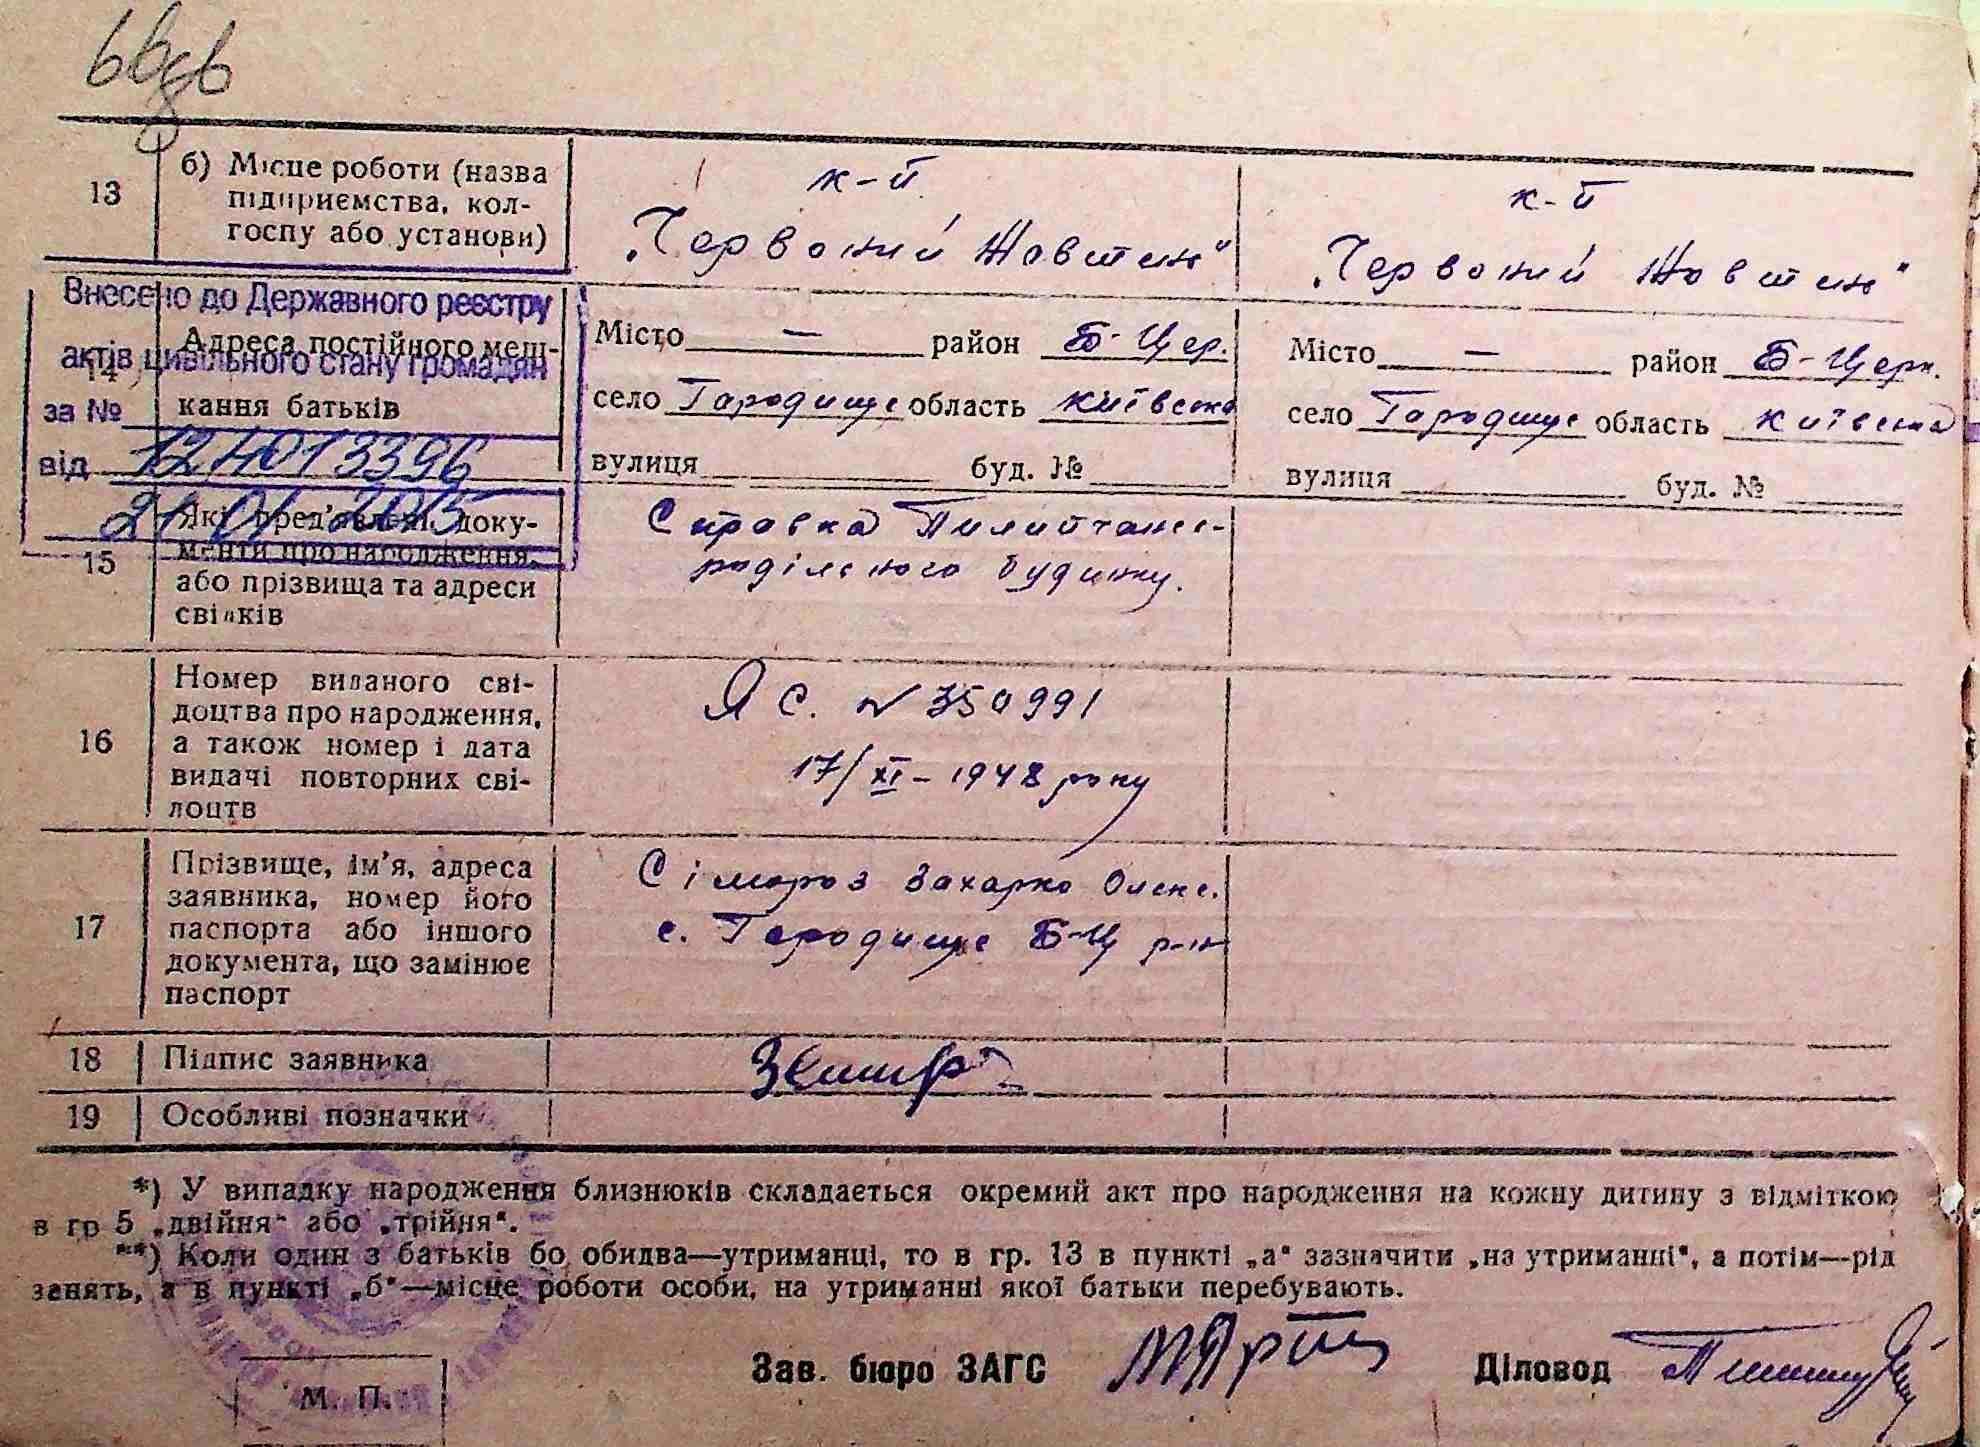 13
б) Місце роботи (назва
підприємства, кол-
госпу або установи)
к-п
„Червоний Жовтень"
к-п
„Червоний Жовтень"
Внесено до Державного реєстру
актів цивільного стану громадян
за №
від 1274013396
21 01 2015
14
Адреса постійного меш-
кання батьків
Місто — район Б-Цер.
село Городище область Київська
вулиця буд. №
Місто — район Б-Церк.
село Городище область Київська
вулиця буд. №
15
Які пред'явлені доку-
менти про народження,
або прізвища та адреси
свідків
Справка
родільного будинку.
16
Номер виданого сві-
доцтва про народження,
а також номер і дата
видачі повторних сві-
доцтв
ЯС. № 350991
17/XI - 1948 року
17
Прізвище, ім'я, адреса
заявника, номер його
паспорта або іншого
документа, що замінює
паспорт
Сімороз Захарко Олекс.
с. Городище Б-Ц р-н
18
Підпис заявника
19
Особливі позначки
*) У випадку народження близнюків складається окремий акт про народження на кожну дитину з відміткою
в гр 5 „двійня" або „трійня".
**) Коли один з батьків бо обидва—утриманці, то в гр. 13 в пункті „а" зазначити „на утриманні", а потім—рід
занять, а в пункті „б"—місце роботи особи, на утриманні якої батьки перебувають.
Зав. бюро ЗАГС
Діловод
М. П.